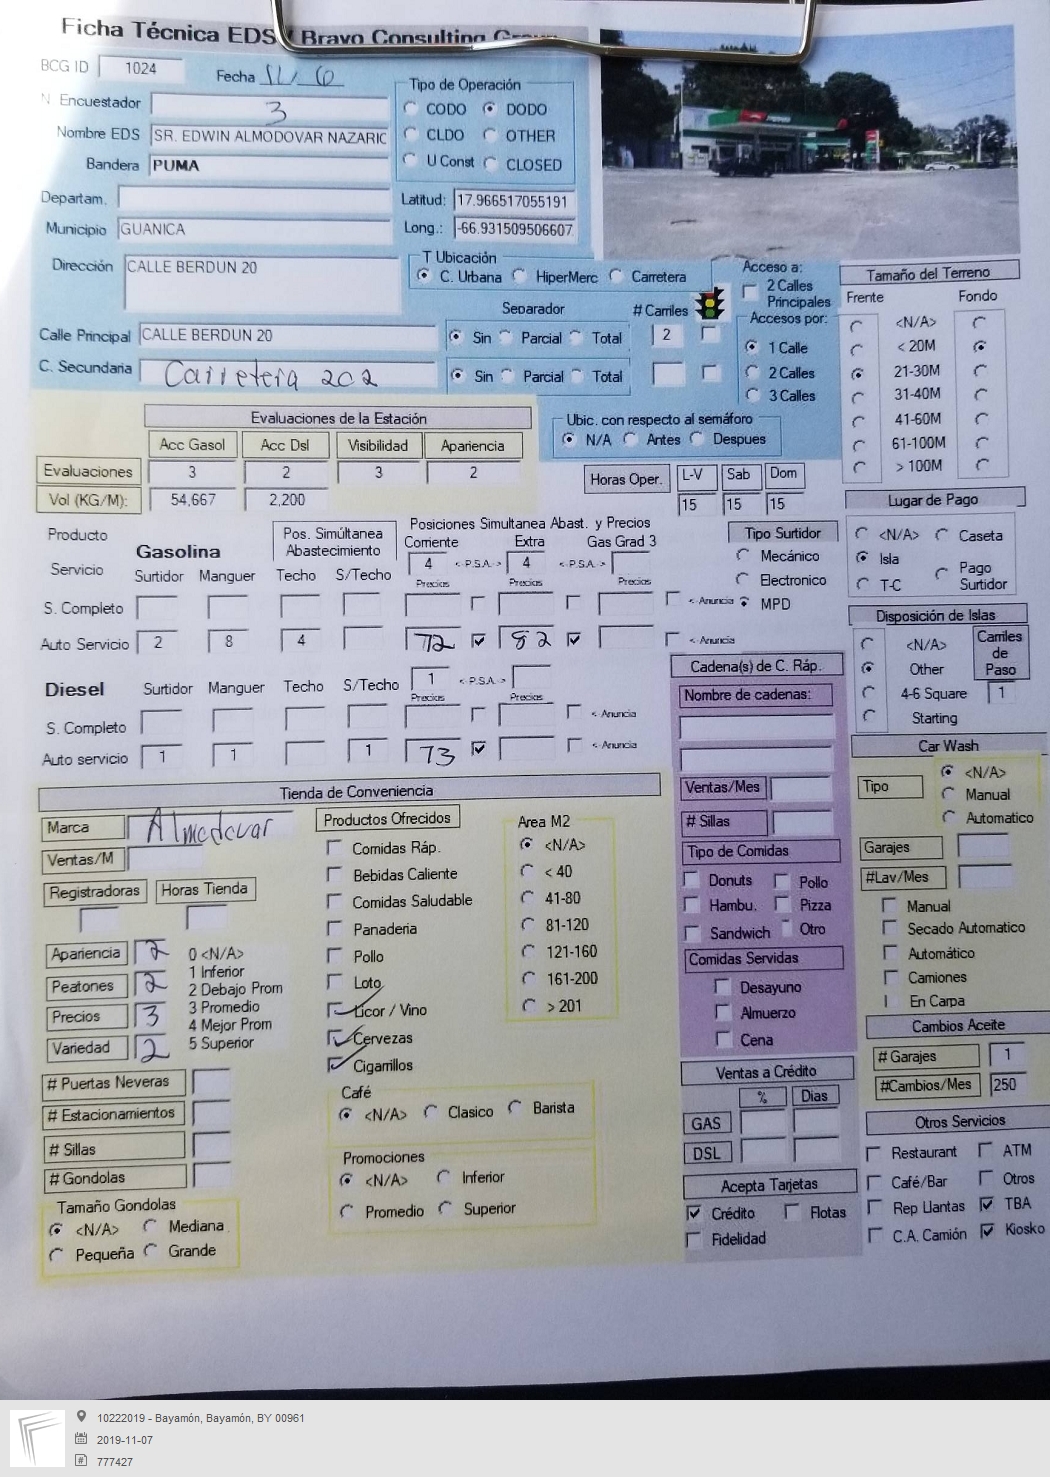 Ficha Técnica EDS / Bravo Consulting Group
BCG ID 1024 Fecha 11/6
N. Encuestador 3
Nombre EDS SR. EDWIN ALMODOVAR NAZARIC
Bandera PUMA
Departam.
Municipio GUANICA
Tipo de Operación
CODO DODO
CLDO OTHER
U Const CLOSED
Latitud: 17.966517055191
Long.: -66.931509506607
Dirección CALLE BERDUN 20
T Ubicación
C. Urbana HiperMerc Carretera
Calle Principal CALLE BERDUN 20
C. Secundaria Carretera 202
Separador # Carriles
Sin Parcial Total 2
Sin Parcial Total
Acceso a:
2 Calles
Principales
Accesos por:
1 Calle
2 Calles
3 Calles
Tamaño del Terreno
Frente Fondo
<N/A>
< 20M
21-30M
31-40M
41-60M
61-100M
> 100M
Evaluaciones de la Estación
Acc Gasol Acc Dsl Visibilidad Apariencia
Evaluaciones 3 2 3 2
Vol (KG/M): 54,667 2,200
Ubic. con respecto al semáforo
N/A Antes Despues
Horas Oper. L-V Sab Dom
15 15 15
Lugar de Pago
<N/A> Caseta
Isla Pago
T-C Surtidor
Producto
Servicio
Gasolina
Pos. Simúltanea
Abastecimiento
Posiciones Simultanea Abast. y Precios
Corriente Extra Gas Grad 3
4 <-P.S.A.-> 4 <-P.S.A.->
Surtidor Manguer Techo S/Techo Precios Precios Precios
S. Completo <-Anuncia
Auto Servicio 2 8 4 72 82 <-Anuncia
Tipo Surtidor
Mecánico
Electronico
MPD
Disposición de Islas
<N/A>
Other
4-6 Square
Starting
Carriles
de
Paso
1
Diesel Surtidor Manguer Techo S/Techo 1 <-P.S.A->
Precios Precios
S. Completo <-Anuncia
Auto servicio 1 1 1 73 <-Anuncia
Cadena(s) de C. Ráp.
Nombre de cadenas:
Ventas/Mes
# Sillas
Tipo de Comidas
Donuts Pollo
Hambu. Pizza
Sandwich Otro
Comidas Servidas
Desayuno
Almuerzo
Cena
Car Wash
Tipo <N/A>
Manual
Automatico
Garajes
#Lav/Mes
Manual
Secado Automatico
Automático
Camiones
En Carpa
Tienda de Conveniencia
Marca Almodovar
Ventas/M
Registradoras Horas Tienda
Apariencia 2
Peatones 2
Precios 3
Variedad 2
0 <N/A>
1 Inferior
2 Debajo Prom
3 Promedio
4 Mejor Prom
5 Superior
# Puertas Neveras
# Estacionamientos
# Sillas
# Gondolas
Tamaño Gondolas
<N/A> Mediana
Pequeña Grande
Productos Ofrecidos
Comidas Ráp.
Bebidas Caliente
Comidas Saludable
Panaderia
Pollo
Loto
Licor / Vino
Cervezas
Cigarrillos
Area M2
<N/A>
< 40
41-80
81-120
121-160
161-200
> 201
Café
<N/A> Clasico Barista
Promociones
<N/A> Inferior
Promedio Superior
Ventas a Crédito
% Dias
GAS
DSL
Acepta Tarjetas
Crédito Flotas
Fidelidad
Cambios Aceite
# Garajes 1
#Cambios/Mes 250
Otros Servicios
Restaurant ATM
Café/Bar Otros
Rep Llantas TBA
C.A. Camión Kiosko
10222019 - Bayamón, Bayamón, BY 00961
2019-11-07
777427